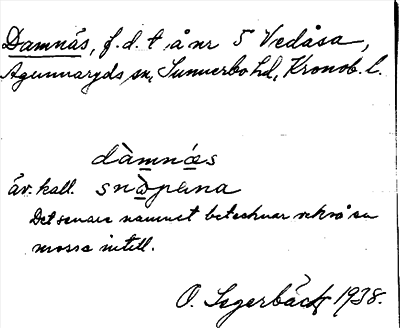 Damnäs, f.d. t. å nr 5 Vedåsa,
Agunnaryds sn, Sunnerbo hd, Kronob. l.
dàmnæs
äv. kall. snɔ̀pana
Det senare namnet betecknar också en
mosse intill.
O. Segerbäck 1938.